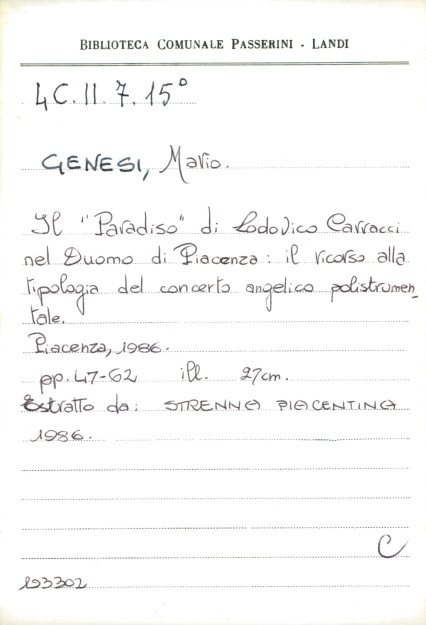 BIBLIOTECA COMUNALE PASSERINI - LANDI
4C.II.7.15°
GENESI, Mario.
Il "Paradiso" di Lodovico Carracci
nel Duomo di Piacenza: il ricorso alla
tipologia del concerto angelico polistrumen_
tale.
Piacenza, 1986.
pp. 47-62 ill. 27cm.
Estratto da: STRENNA PIACENTINA
1986.
C
193302